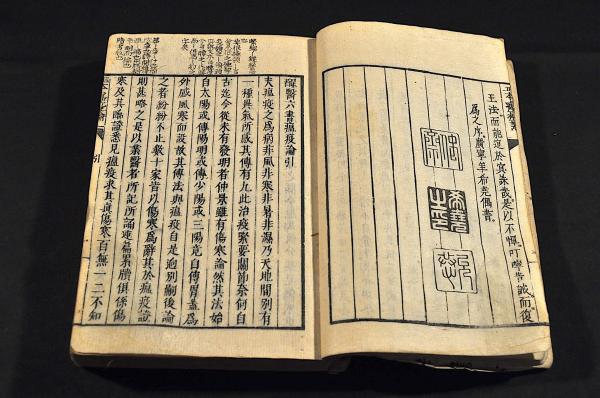 王法而能逭於冥誅哉是以不憚叮嚀告誡而復
為之序廣寧年希堯偶書
希堯之印
醒醫六書瘟疫論引
夫瘟疫之為病非風非寒非暑非濕乃天地間別有
一種異氣所感其傳有九此治疫緊要關節奈何自
古迄今從未有發明者仲景雖有傷寒論然其法始
自太陽或傳陽明或傳少陽或三陽竟自傳胃蓋為
外感風寒而設故其傳法與瘟疫自是迥別嗣後論
之者紛紛不止數十家皆以傷寒為辭其於瘟疫證
則甚略之是以業醫者所記所誦連篇累牘俱係傷
寒及其臨證悉見瘟疫求其真傷寒百無一二不知
引